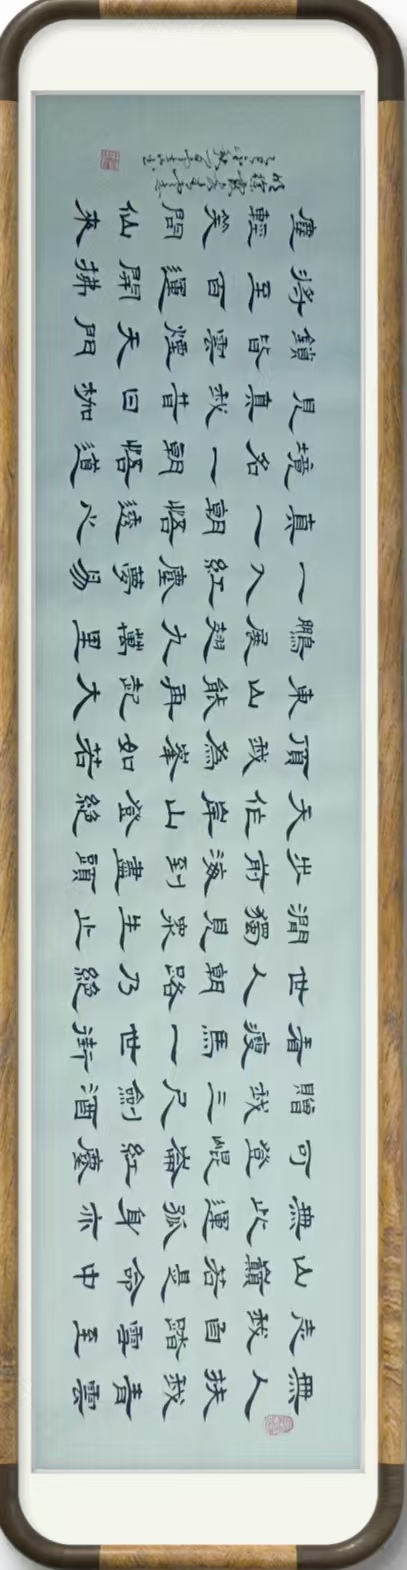 無人扶我青雲
志我自踏雪至
山巔若是命中
無此運孤身亦
可登崑崙紅塵
贈我三尺劍酒
香瘦馬一世街
世人朝路乃絕
澗獨見眾生止
步前海到盡頭
天作岸山登絕
頂我為峯如若
東山能再起大
鵬展翅九萬里
一入紅塵夢易
真一朝悟透心
境名一朝悟道
見真我昔日枷
鎖皆雲煙天門
将至百運開拂
塵輕笑問仙來